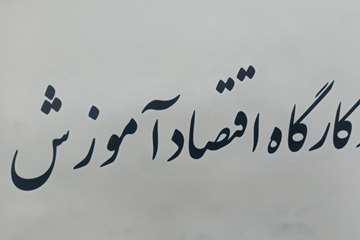 کارگاه اقتصاد آموزش